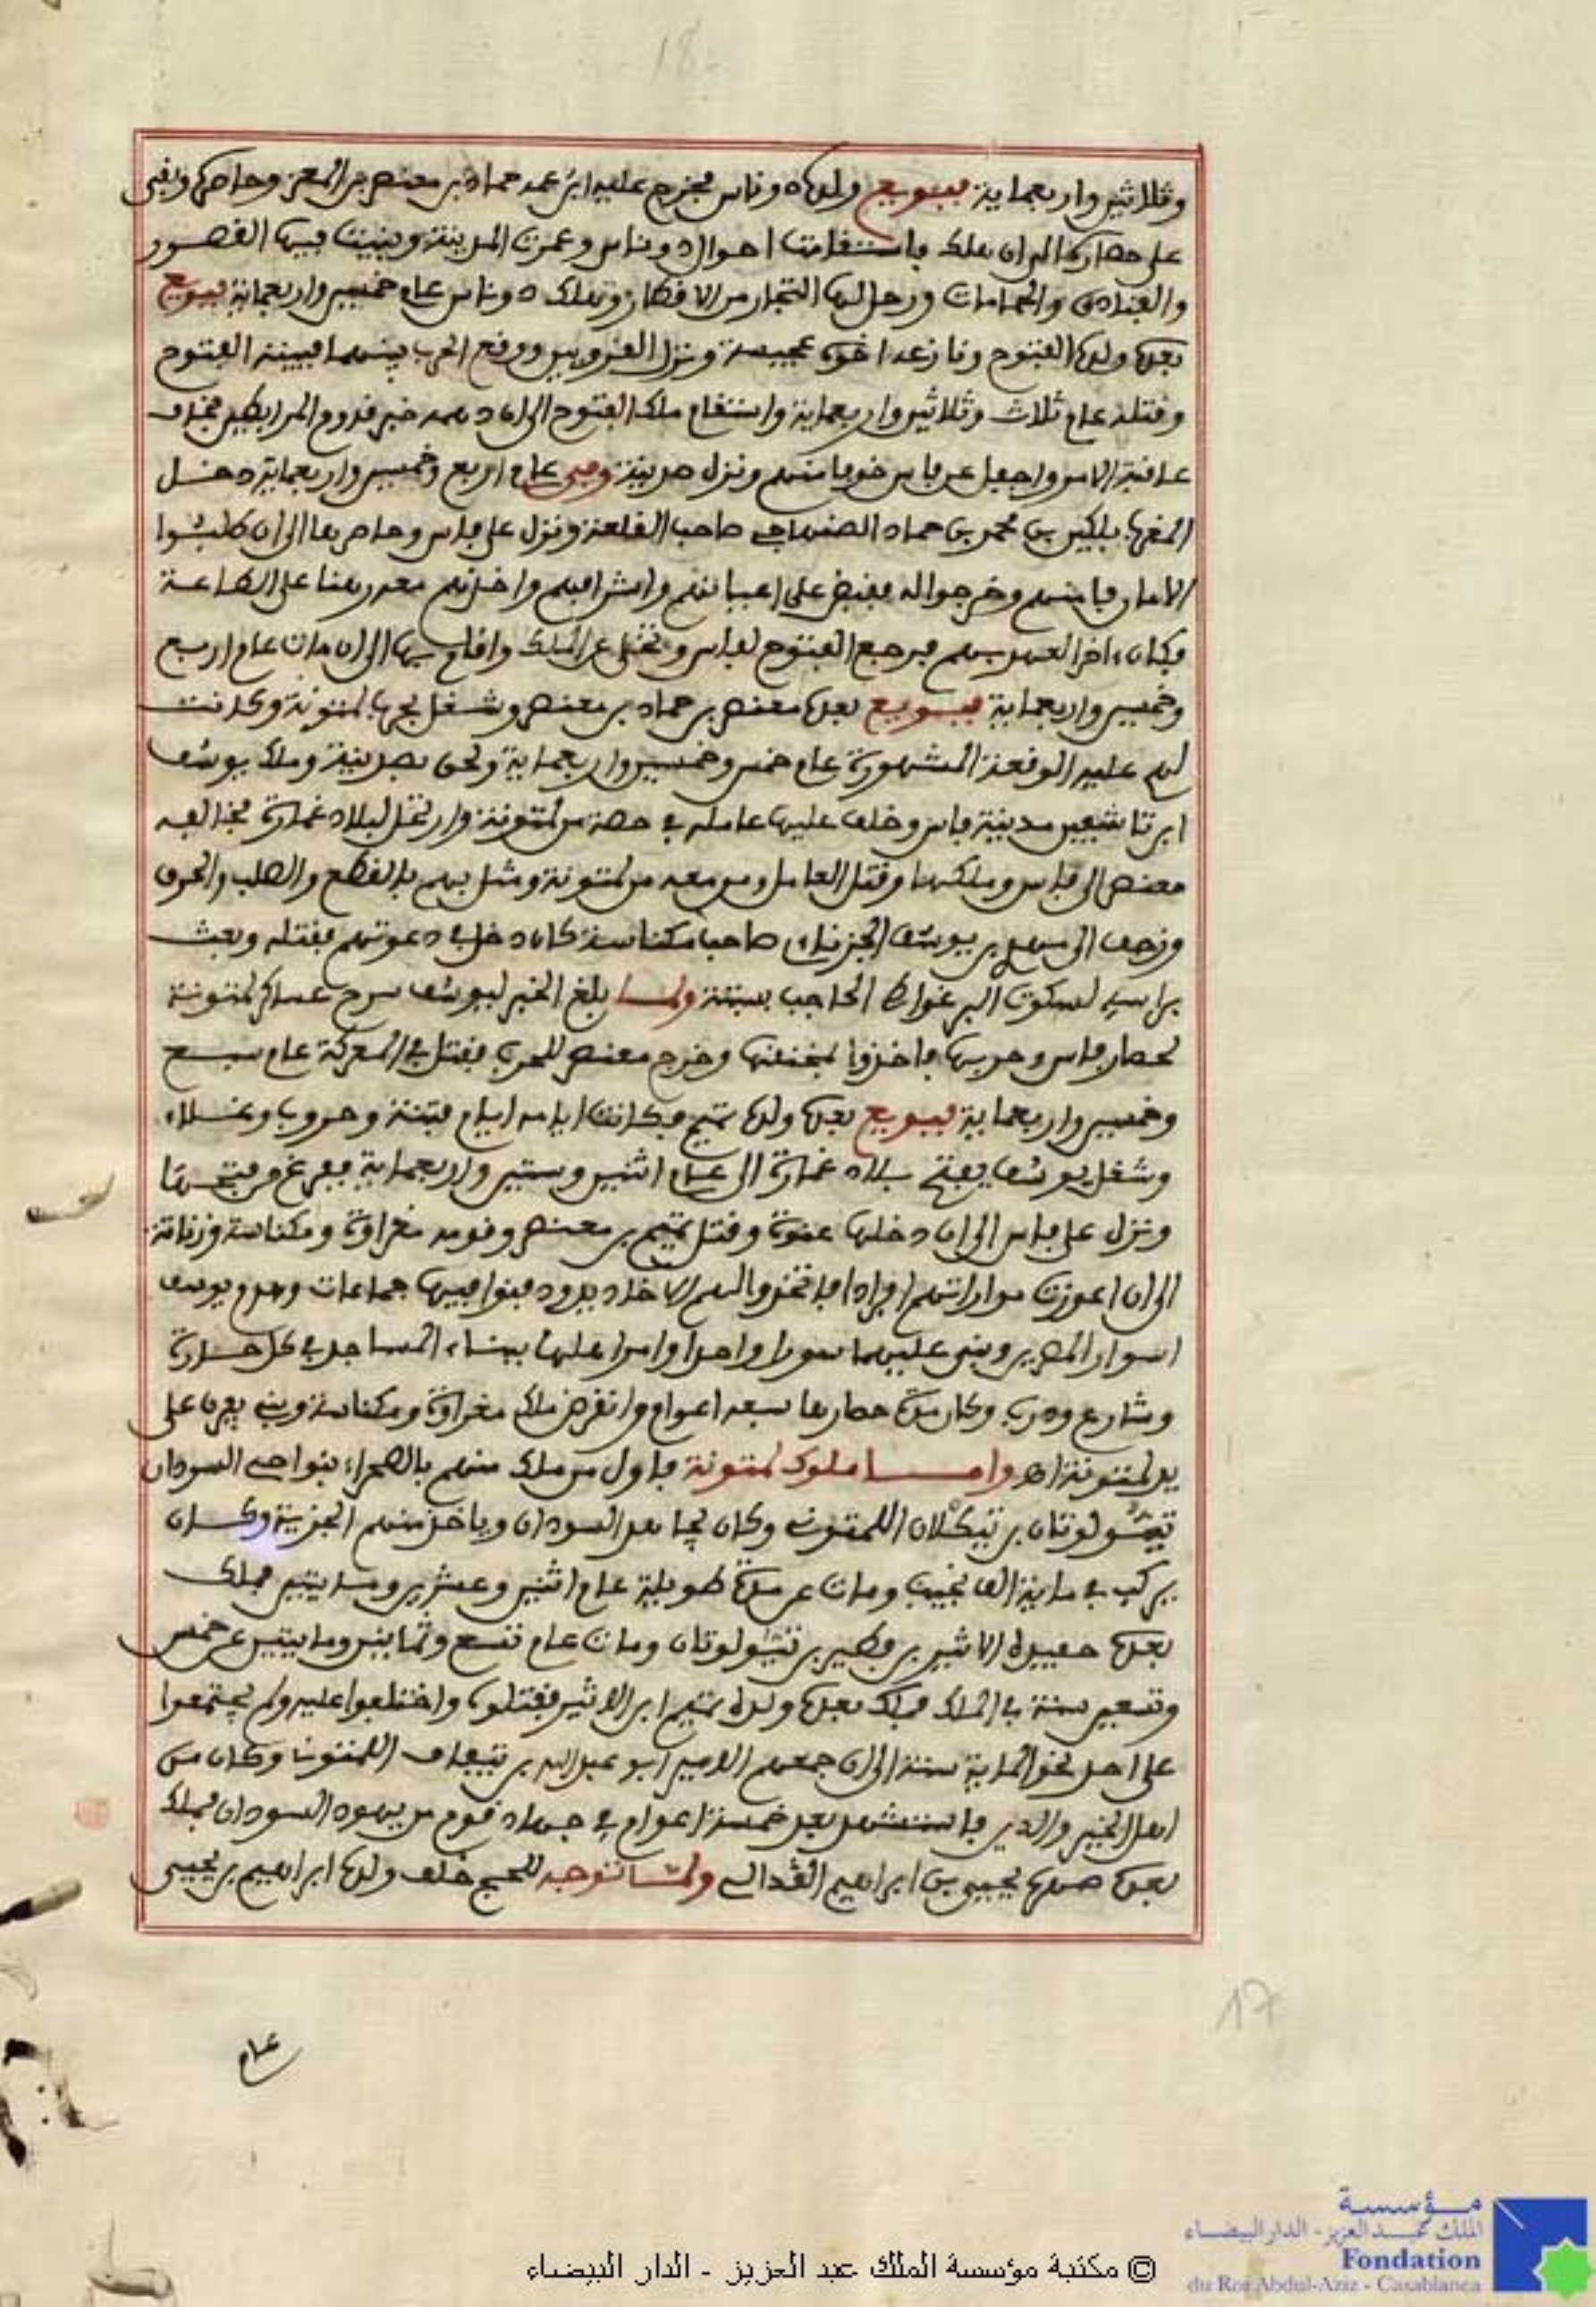 18
وثلاثين واربعماية فبويع ولده دوناس فخرج عليه ابن عمه حماد بن معنصر بن المعز وحاصره وبقي
على حصاره الى ان هلك فاستقامت احوال دوناس وعمرت المدينة وبنيت فيها القصور
والفنادق والحمامات ورحل اليها التجار من الاقطار وهلك دوناس عام خمسين واربعماية فبويع
بعده ولده الفتوح ونازعه اخوه عجيسة ونزل القرويين ووقع الحرب بينهما فبيته الفتوح
وقتله عام ثلاث وثلاثين واربعماية واستقام ملك الفتوح الى ان دهمه خبر قدوم المرابطين فخاف
عاقبة الامر واجفل عن فاس خوفا منهم ونزل صدينة وفي عام اربع وخمسين واربعماية دخل
المغرب بلكين بن محمد بن حماد الصنهاجي صاحب القلعة ونزل على فاس وحاصرها الى ان طلبوا
الامان فامنهم وخرجوا له فقبض على اعيانهم واشرافهم واخذهم معه رهنا على الطاعة
فكان ءاخر العهد بهم فرجع الفتوح لفاس وتخلى عن الملك واقام بها الى ان مات عام اربع
وخمسين واربعماية فبويع بعده معنصر بن حماد بن معنصر وشغل بحرب لمتونة وكانت
لهم عليه الوقعة المشهورة عام خمس وخمسين واربعماية ولحق بصدينة وملك يوسف
ابن تاشفين مدينة فاس وخلف عليها عامله في حصة من لمتونة وارتحل لبلاد غمارة فخالفه
معنصر الى فاس وملكها وقتل العامل ومن معه من لمتونة ومثل بهم بالقطع والصلب والحرق
وزحف الى مهدي بن يوسف الجزنائي صاحب مكناسة كان دخل في دعوتهم فقتله وبعث
براسه لسكوت البرغواطي الحاجب بسبتة ولما بلغ الخبر ليوسف سرح عساكر لمتونة
لحصار فاس وحربها فاخذوا بمخنقها وخرج معنصر للحرب فقتل في المعركة عام سبع
وخمسين واربعماية فبويع بعده ولده تميم فكانت ايامه ايام فتنة وحروب وغلاء
وشغل يوسف بفتح بلاد غمارة الى عام اثنين وستين واربعماية ففرغ من فتحها
ونزل على فاس الى ان دخلها عنوة وقتل تميم بن معنصر وقومه مغراوة ومكناسة وزناتة
الى ان اعوزت مواراتهم افرادا فاتخذوا لهم الاخاديد ودفنوا فيها جماعات وهدم يوسف
اسوار المصرين وبنى عليهما سورا واحدا وامر اهلها ببناء المساجد في كل حارة
وشارع ودرب وكان مدة حصارها سبعة اعوام وانقرض ملك مغراوة ومكناسة وبني يفرن على
يد لمتونة اهـ واما ملوك لمتونة فاول من ملك منهم بالصحراء بنواحي السودان
تيثولوثان بن تيكلان اللمتوني وكان يجاهد السودان وياخذ منهم الجزية وكان
يركب في ماية الف نجيب ومات عن مدة طويلة عام اثنين وعشرين ومايتين فملك
بعده حفيده الاثير بن فطير بن تيثولوثان ومات عام تسع وثمانين ومايتين عن خمس
وتسعين سنة في الملك فملك بعده ولده تميم ابن الاثير فقتلوه واختلفوا عليه ولم يجتمعوا
على احد نحو الماية سنة الى ان جمعهم الامير ابو عبد الله بن تيفاوت اللمتوني وكان من
اهل الخير والدين فاستشهد بعد خمسة اعوام في جهاد قوم من يهود السودان فملك
بعده صهره يحيى بن ابراهيم القدالي ولما توجه للحج خلف ولده ابراهيم بن يحيى
17
عام
مؤسسة
الملك عبد العزيز - الدار البيضاء
Fondation
du Roi Abdul-Aziz - Casablanca
© مكتبة مؤسسة الملك عبد العزيز - الدار البيضاء